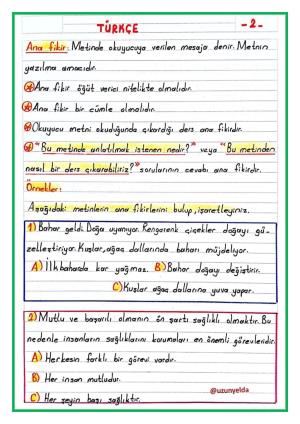 TÜRKÇE
-2-
Ana fikir: Metinde okuyucuya verilen mesaja denir. Metnin
yazılma amacıdır.
Ana fikir öğüt verici nitelikte olmalıdır.
Ana fikir bir cümle olmalıdır.
Okuyucu metni okuduğunda çıkardığı ders ana fikirdir.
"Bu metinde anlatılmak istenen nedir?" veya "Bu metinden
nasıl bir ders çıkarabiliriz?" sorularının cevabı ana fikirdir.
Örnekler:
Aşağıdaki metinlerin ana fikirlerini bulup, işaretleyiniz.
1) Bahar geldi. Doğa uyanıyor. Rengarenk çiçekler doğayı gü-
zelleştiriyor. Kuşlar, ağaç dallarında baharı müjdeliyor.
A) İlkbaharda kar yağmaz. B) Bahar doğayı değiştirir.
C) Kuşlar ağaç dallarına yuva yapar.
2) Mutlu ve başarılı olmanın ön şartı sağlıklı olmaktır. Bu
nedenle insanların sağlıklarını korumaları en önemli görevleridir.
A) Herkesin farklı bir görevi vardır.
B) Her insan mutludur.
C) Her şeyin başı sağlıktır.
@uzunyelda